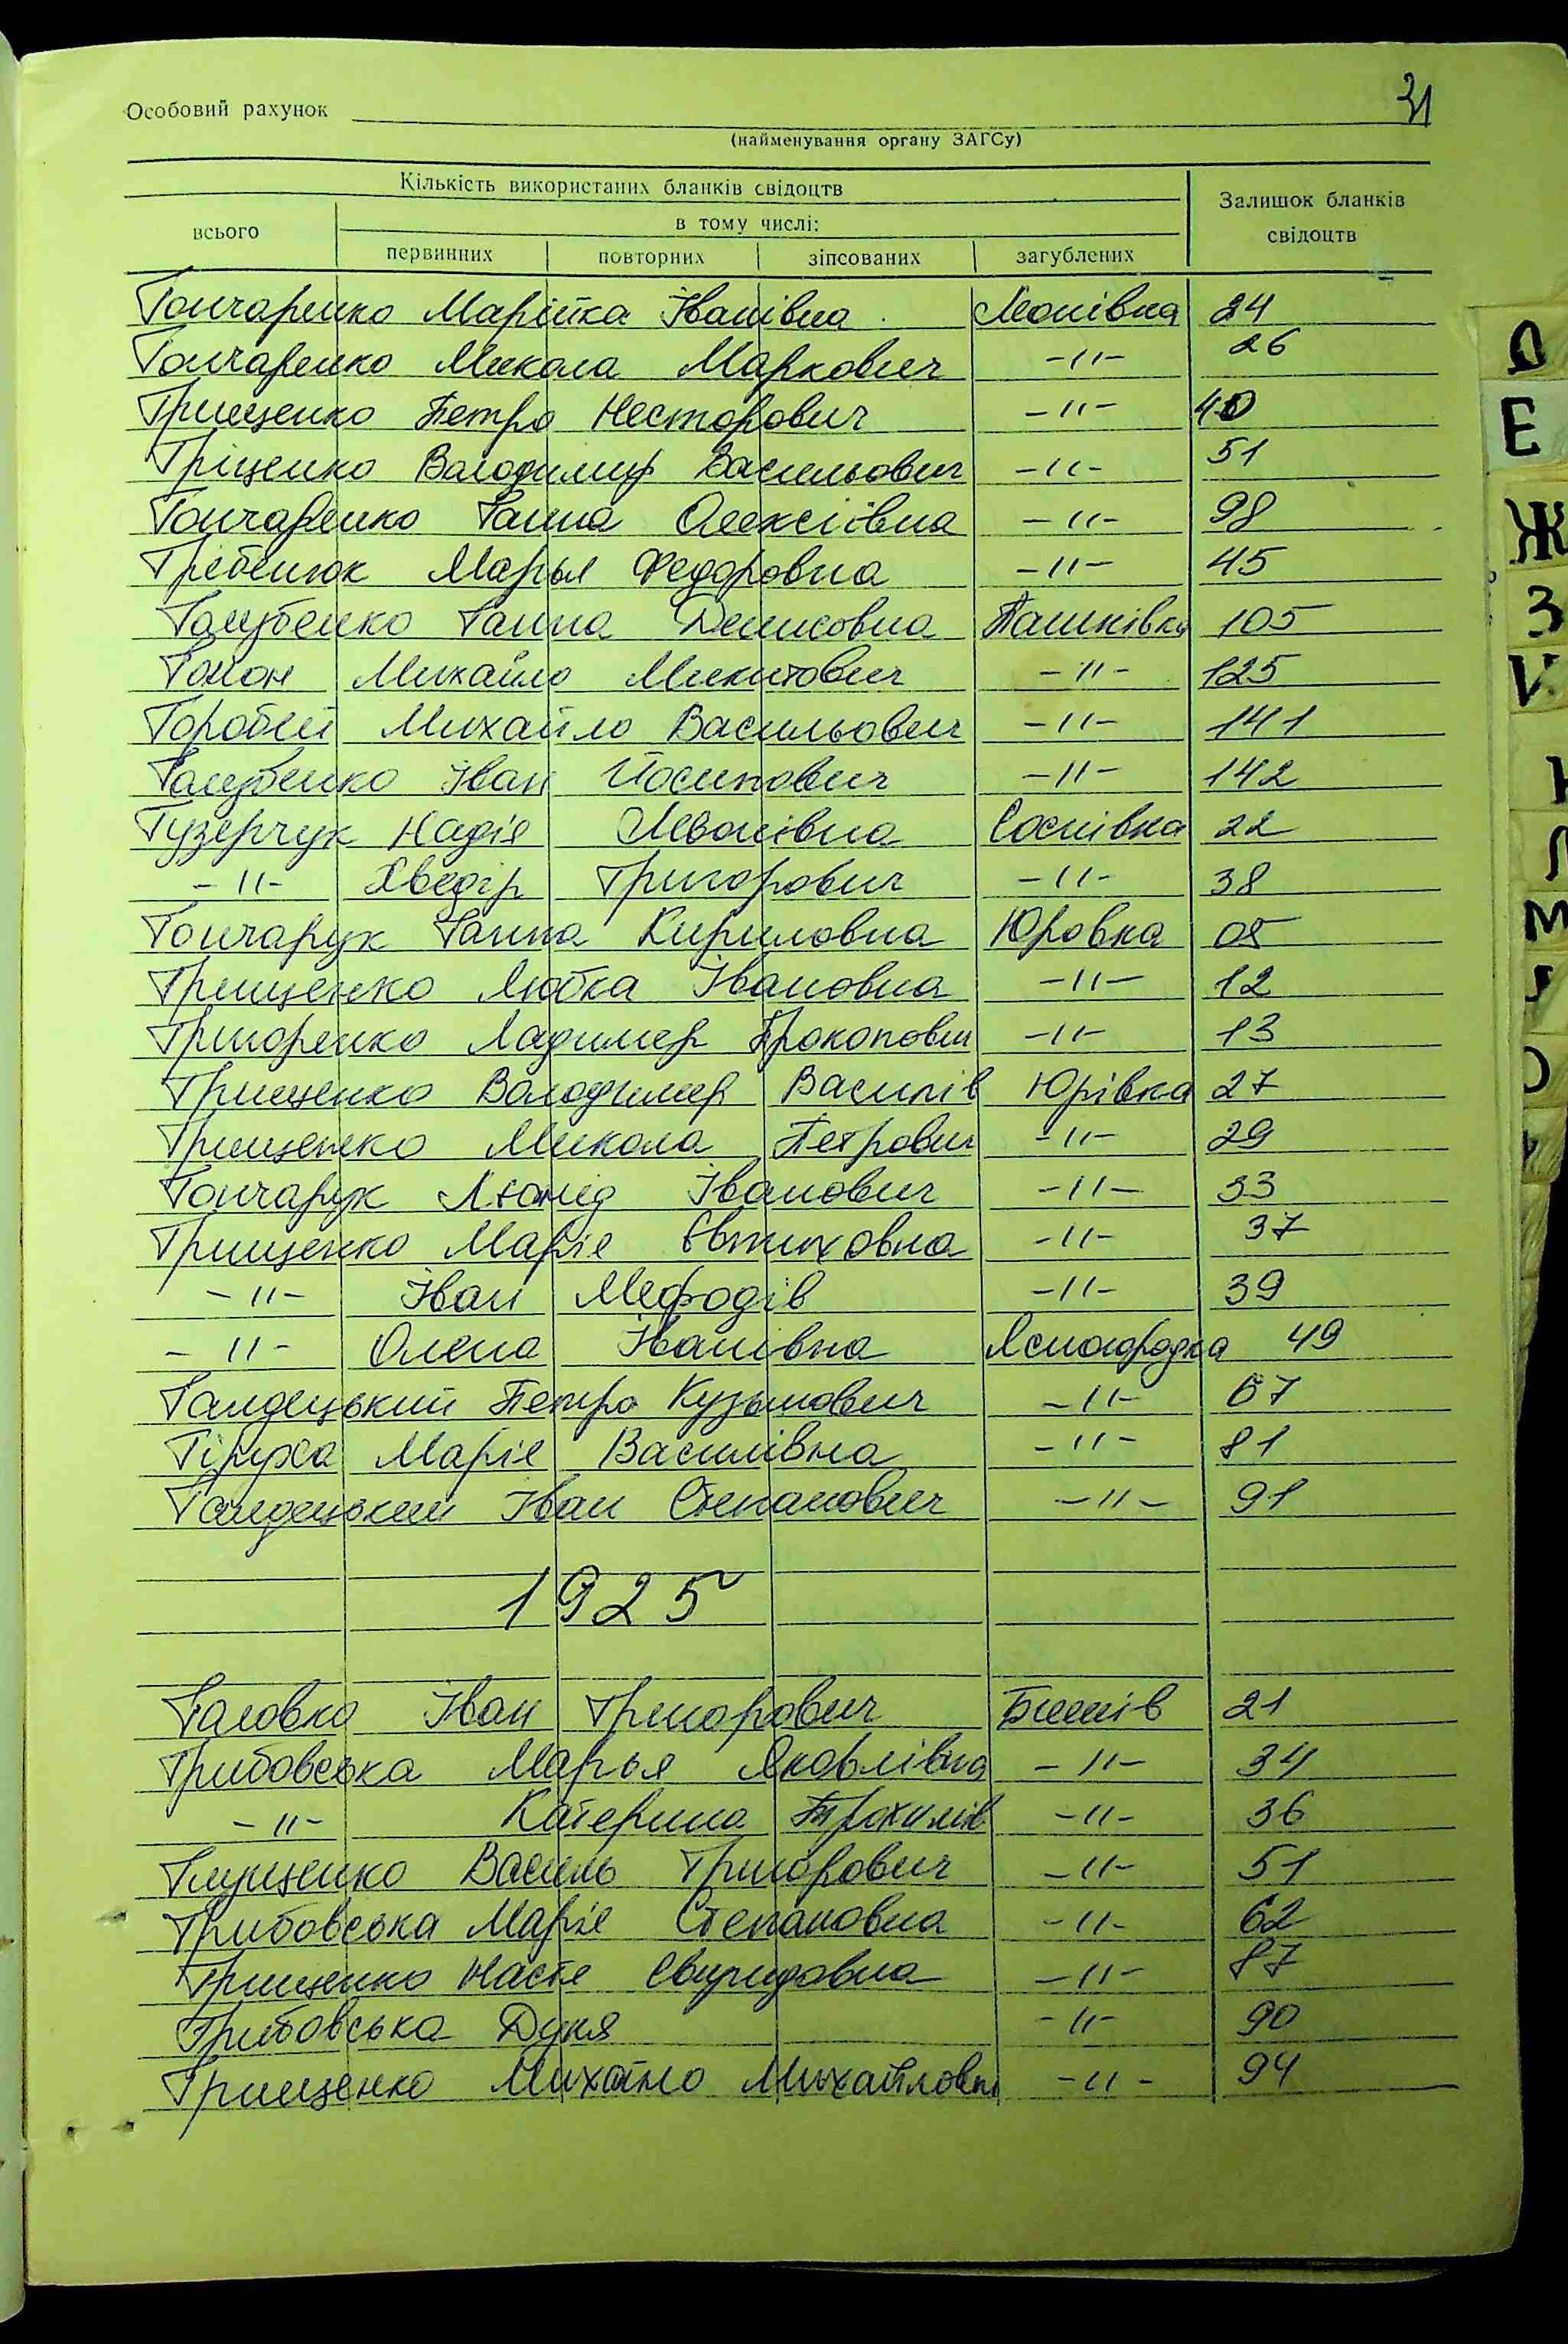 31
Особовий рахунок
(найменування органу ЗАГСу)
Кількість використаних бланків свідоцтв
Залишок бланків свідоцтв
всього
в тому числі:
первинних повторних зіпсованих загублених
Гончаренко Марійка Іванівна Леонівка 24
Гончаренко Микола Маркович -"- 26
Грищенко Петро Несторович -"- 40
Гріценко Володимир Васильович -"- 51
Гончаренко Ганна Олексіївна -"- 98
Гребенюк Марья Федоровна -"- 45
Голубенко Ганна Денисовна Пашківка 105
Гомон Михайло Микитович -"- 125
Горобей Михайло Васильович -"- 141
Голубенко Іван Йосипович -"- 142
Гузерчук Надіє Левонівна Соснівка 22
-"- Хведір Григорович -"- 38
Гончарук Ганна Кириловна Юровка 08
Грищенко Любка Івановна -"- 12
Григоренко Ладимер Прокопович -"- 13
Грищенко Володимер Василів Юрівка 27
Грищенко Микола Петрович -"- 29
Гончарук Леонід Іванович -"- 33
Грищенко Маріє Євтиховна -"- 37
-"- Іван Мефодів -"- 39
-"- Олена Іванівна Ясногородка 49
Галдецький Петро Кузьмович -"- 67
Гіруха Маріє Василівна -"- 81
Галдецький Іван Степанович -"- 91
1925
Головко Іван Григорович Бишів 21
Грибовська Марья Яковлівна -"- 34
-"- Катерина Трохимів -"- 36
Глущенко Василь Григорович -"- 51
Грибовська Маріє Степановна -"- 62
Грищенко Настє Свиридовна -"- 87
Грибовська Дуня -"- 90
Грищенко Михайло Михайлович -"- 94
О
Е
Ж
З
И
К
Л
М